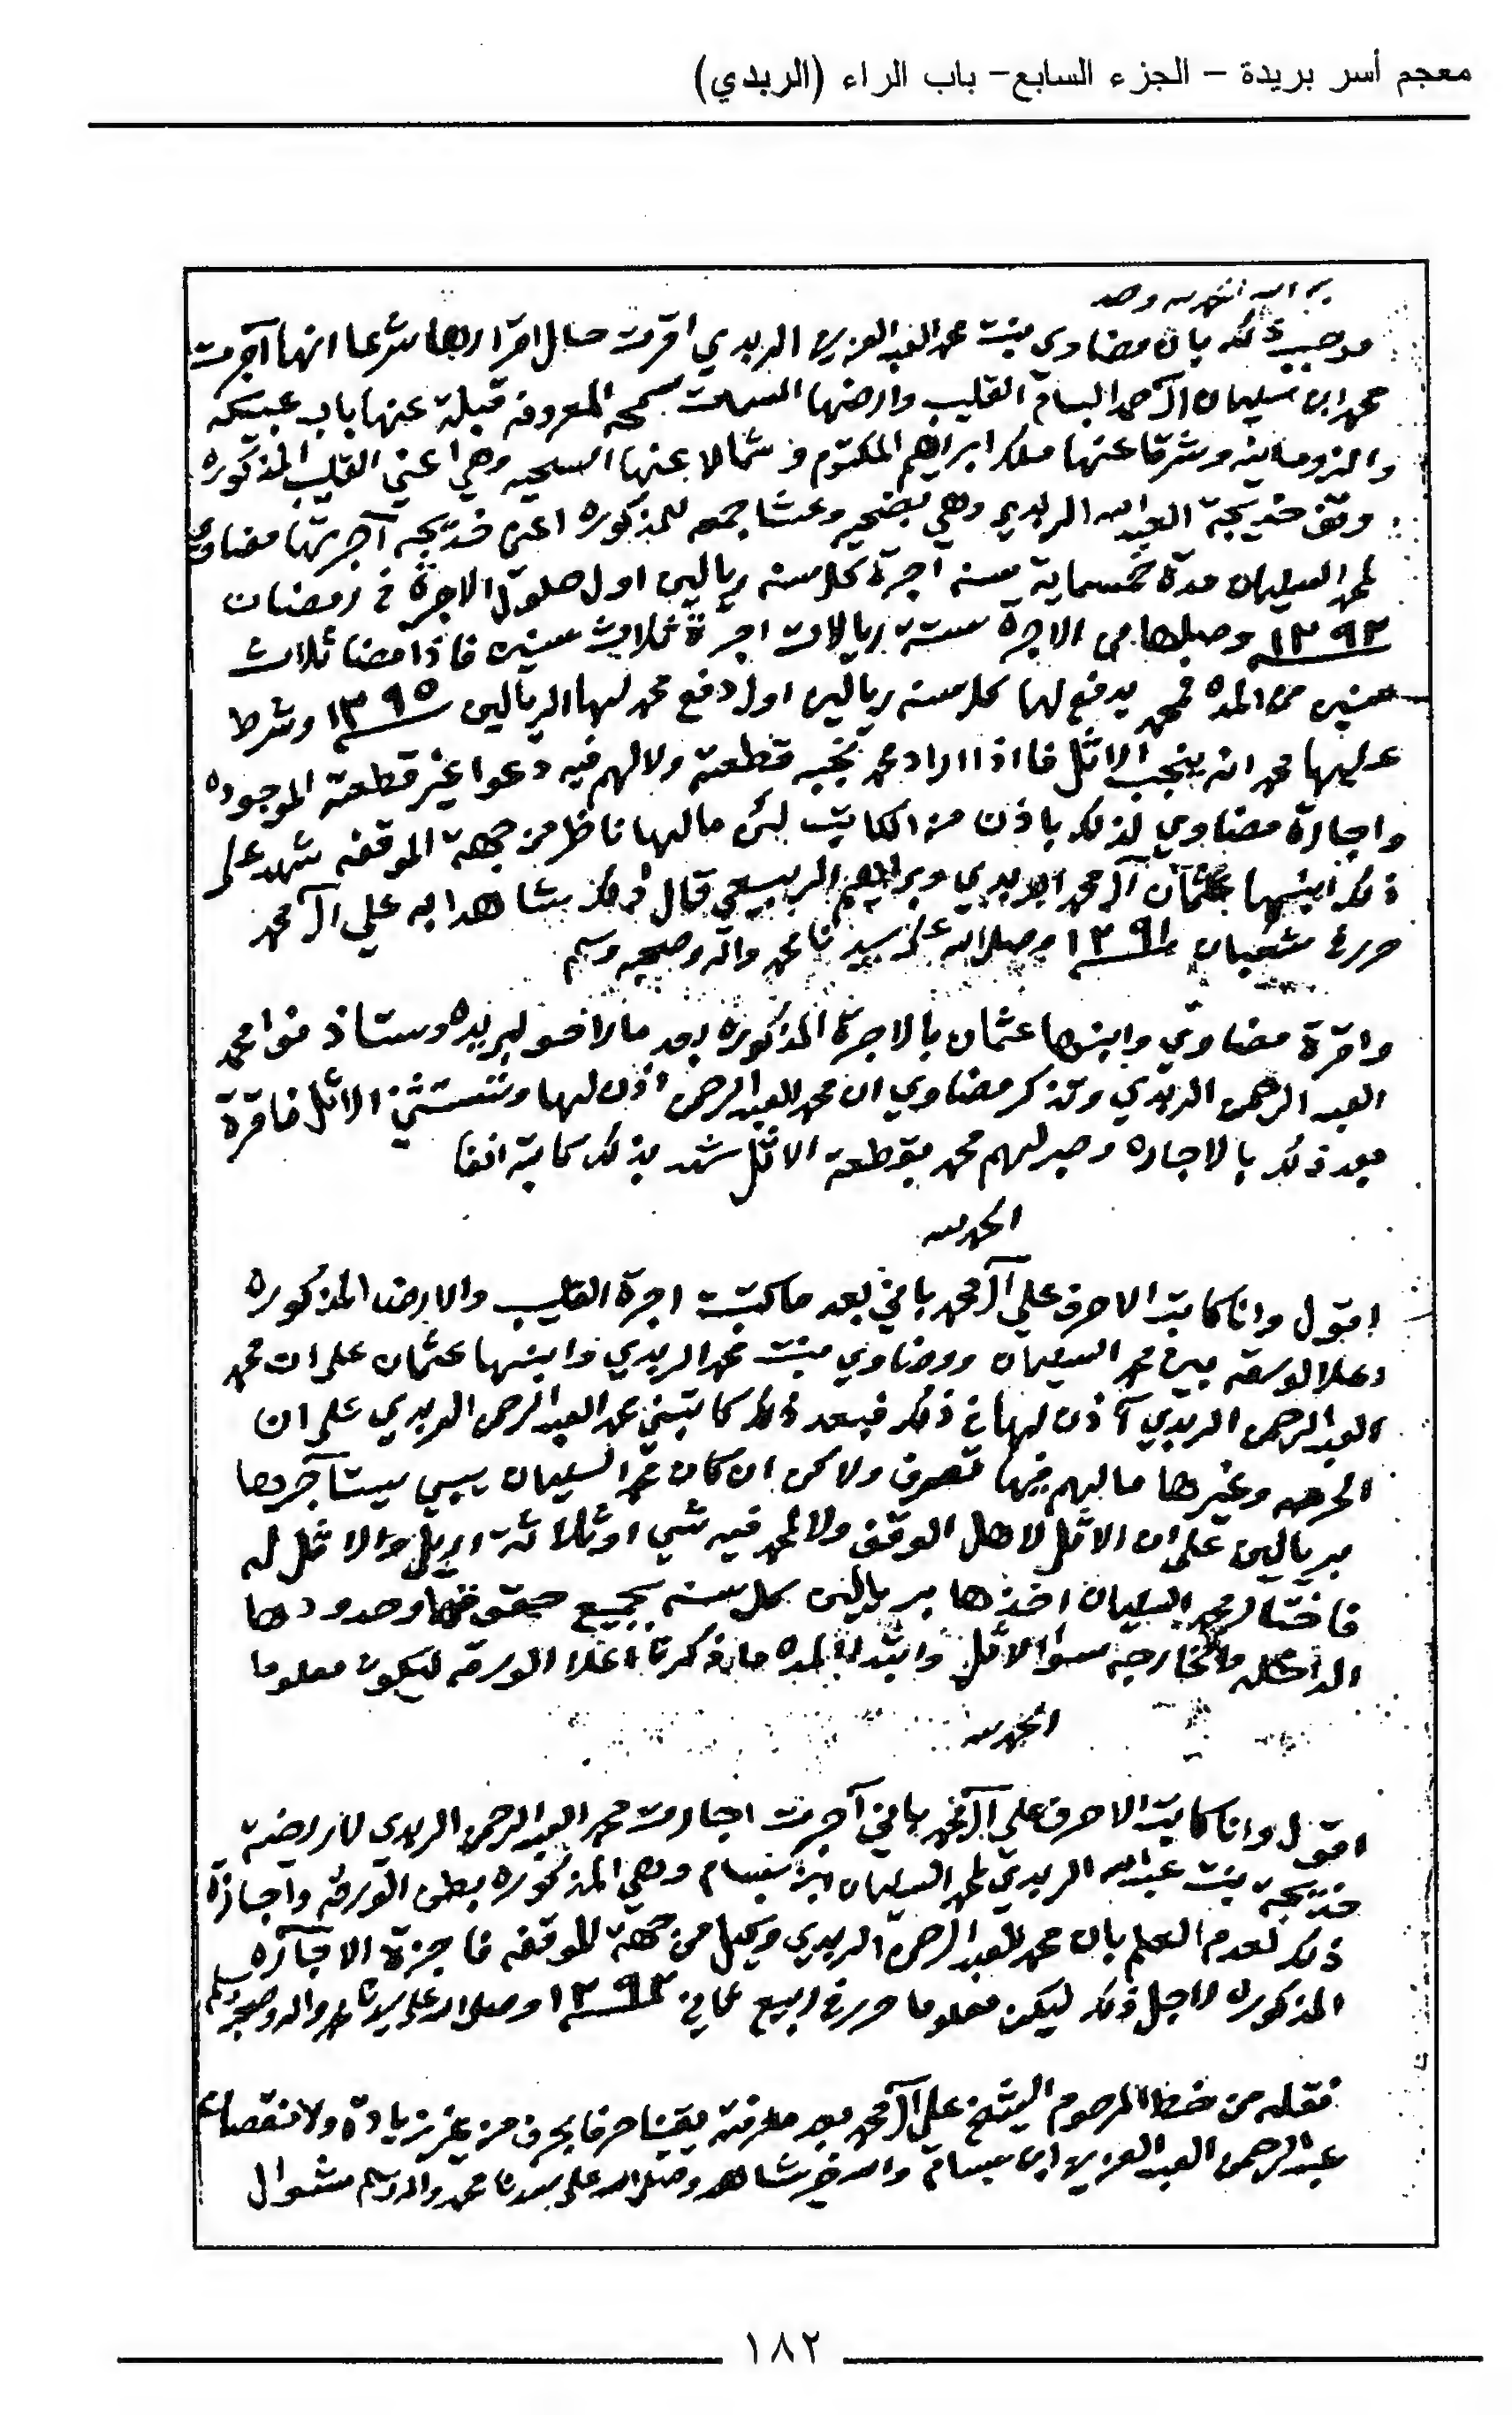 معجم أسر بريدة – الجزء السابع– باب الراء (الربدي)
الحمد لله وحده
موجب ذلك بان مضاوي بنت محمد العبد العزيز الربدي اقرت حال اقرارها شرعا انها آجرت
محمد ابن سليمان آل حمد البسام القليب وارضها المسمات سمحه المعروفه قبلة عنها باب
وشرقا عنها ملك ابراهيم المكتوم وشمالا عنها وهي اعني القليب المذكوره
وقف خديجة العبد الله الربدي وهي بضحيه وعشا جمعه للمذكوره اعني خديجه آجرتها مضاوي
لمحمد السليمان مدة خمسماية سنه اجرة كل سنه ريالين اول حلول الاجرة في رمضان
١٣٩٣ وصلها من الاجرة ستة ريالات اجرة ثلاث سنين فاذا مضا ثلاث
سنين من المده فمحمد يدفع لها كل سنه ريالين اول دفع محمد لها الريالين ١٣٩٥ وشرط
عليها محمد انه الاثل فااذا اراد محمد قطعه ولا لهم فيه دعوا غير قطعته الموجوده
واجارة مضاوي لذلك باذن من الكاتب لئن مالها ناظر من جهة الموقفه شهد على
ذلك ابنها عثمان آل محمد الربدي وبراهيم الربيعي قال ذلك شاهدا به علي آل محمد
حرر في شعبان ١٣٩١ وصلى الله على سيدنا محمد واله وصحبه وسلم
واقرة مضاوي وابنها عثمان بالاجرة المذكوره بعد ماراحو لبريده وستاذنوا محمد
العبد الرحمن الربدي وتذكر مضاوي ان محمد العبد الرحمن اذن لها وتستثني الاثل فاقرة
بعد ذلك بالاجاره وصبر لهم محمد بقطعة الاثل شهد بذلك كاتبه انفا
الحمد لله
اقول وانا كاتب الاحرف علي آل محمد باني بعد ما كتبت اجرة القليب والارض المذكوره
اعلا الورقه بين محمد السليمان ومضاوي بنت محمد الربدي وابنها عثمان على ان محمد
العبد الرحمن الربدي آذن لها في ذلك فبعد ذلك كاتبني محمد العبد الرحمن الربدي على ان
الحرمه وغيرها مالهم فيها تصرف ولاكن ان كان محمد السليمان يبي يستآجرها
بريالين على ان الاثل لاهل الوقف ولا لمحمد فيه شي او ثلاثة اريل والاثل له
فاختار محمد السليمان اخذها بريالين كل سنه بجميع حقوقها وحدودها
الداخله والخارجه سوا الاثل وابتدا المده ماذكرنا اعلا الورقه ليكون معلوما
الحمد لله
اقول وانا كاتب الاحرف علي آل محمد باني آجرت اجارت محمد العبد الرحمن الربدي
خديجة بنت عبد الله الربدي لمحمد السليمان ابن بسام وهي المذكوره بطن الورقه واجازة
ذلك لعدم العلم بان محمد العبد الرحمن الربدي وكيل من جهة الموقفه فاجزة الاجآره
المذكوره لاجل ذلك ليكن معلوما حرر في ربيع ثاني ١٣٩٢ وصلى الله على سيدنا محمد واله وصحبه وسلم
نقله من خط المرحوم الشيخ علي آل محمد بعد معرفته يقينا حرفا بحرف من غير زيادة ولا نقصان
عبد الرحمن العبد العزيز ابن بسام والله خير شاهد وصلى الله على سيدنا محمد واله وسلم شوال
١٨٢